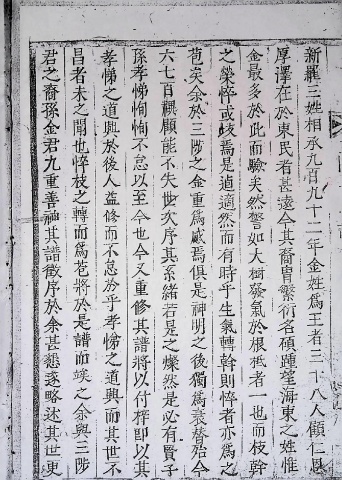 新羅三姓相承九百九十二年金姓爲王者三十八人顧仁恩
厚澤在於東民者甚遠今其裔冑繁衍名碩踵望海東之姓惟
金最多於此而驗矣然譬如大樹發氣於根柢者一也而枝幹
之榮悴或歧焉是逌適然而有時乎生氣轉幹則悴者亦爲之
苞矣余於三陟之金重爲感焉俱是神明之後獨爲衰替殆今
六七百禩顧能不失世次序其系緖若是之燦然是必有賢子
孫孝悌恂恂不怠以至今也今又重修其譜將以付梓卽以其
孝悌之道興於後人益修而不怠於乎孝悌之道興而其世不
昌者未之聞也悴枝之轉而爲苞將於是譜而竢之余與三陟
君之裔孫金君九重善神其譜徵序於余甚懇遂略述其世更